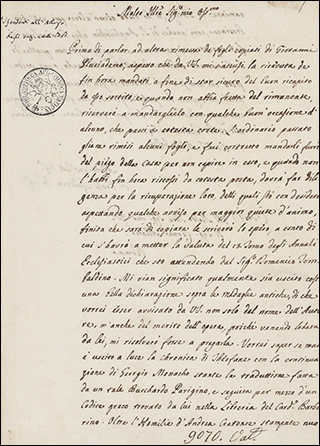 Molto Illre Sigr mio Ossmo
Prima di parlar ad altra rimessa di fogli copiati di Giovanni
Plusiadeno, aspetto che da VS. mi s'accusi la ricevuta de
fin hora mandati, a fine di star sicuro del buon ricapito
da esso sortito, e quando non abbia fretta del rimanente,
riserverò a mandarglielo con qualche buon'occasione d'
alcuno, che passi a cotesta corte. L'ordinario passato
gliene rimisi alcuni fogli, e fui costretto mandarli fuori
del piego della Casa per non capire in esso, e quando non
l'habbi fin hora riscossi da cotesta posta, dovrà far dili
genza per la ricuperazione loro, delli quali stò con desiderio
aspettando qualche aviso per maggior quiete d'animo,
finita che sarà di copiare le scriverò la spesa a conto di
cui s'haverà a metter la valuta del 13 Tomo degli Annali
Ecclesiastici che stò attendendo dal Sigr Domenico Grim
baldino. Mi vien significato qualmente sia uscita costì
una bella dichiarazione sopra le medaglie antiche, di che
vorrei esser avisato da VS. non solo del nome dell'Auto
re, m'anche del merito dell'opera, poichè venendo lodata
da lei, mi risolverei forse a pregarla. Vorrei saper se mai
è uscita a luce la chronica di Theofane con la continua
zione di Giorgio Monacho stante la traduttione fatta
da un tale Burchardo Parigino, e seguita per mezzo d'un
Codice greco trovato da lui nella Libreria del Card. Barbe
rino. Oltre l'Homilie d'Andrea Cretense stampate
9070. Vat